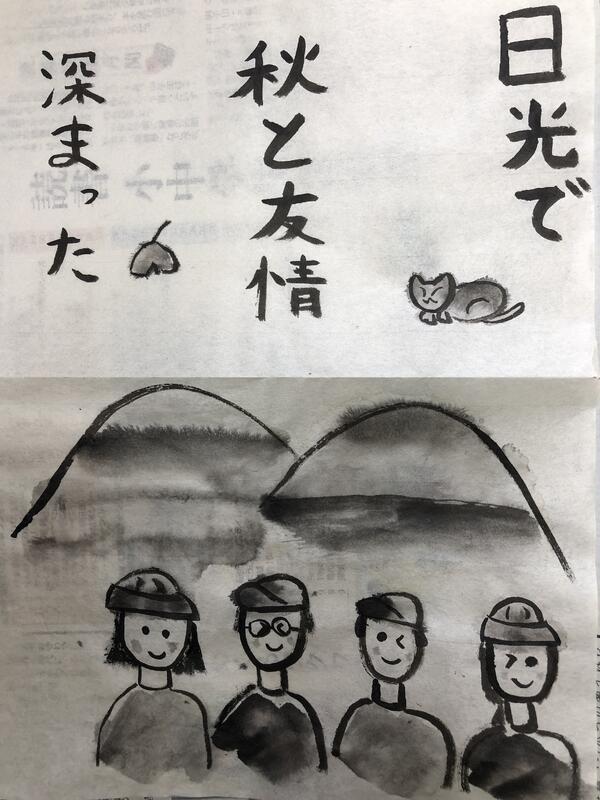 日光で
秋と友情
深まった